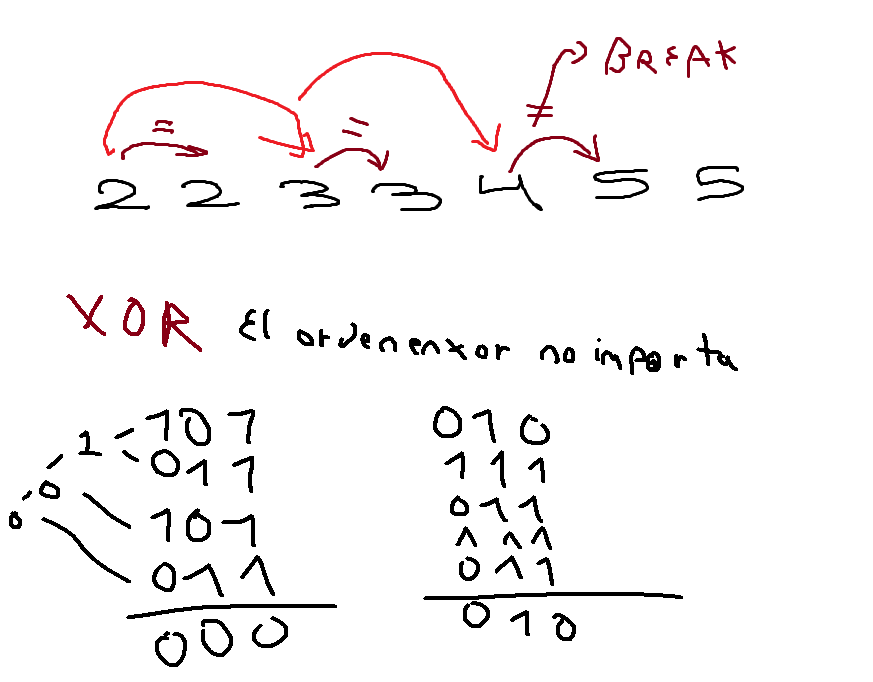 BREAK
= =
≠
2 2 3 3 4 5 5
XOR El orden en xor no importa
101 010
1 011 111
0 101 011
0 111
011 011
000 010